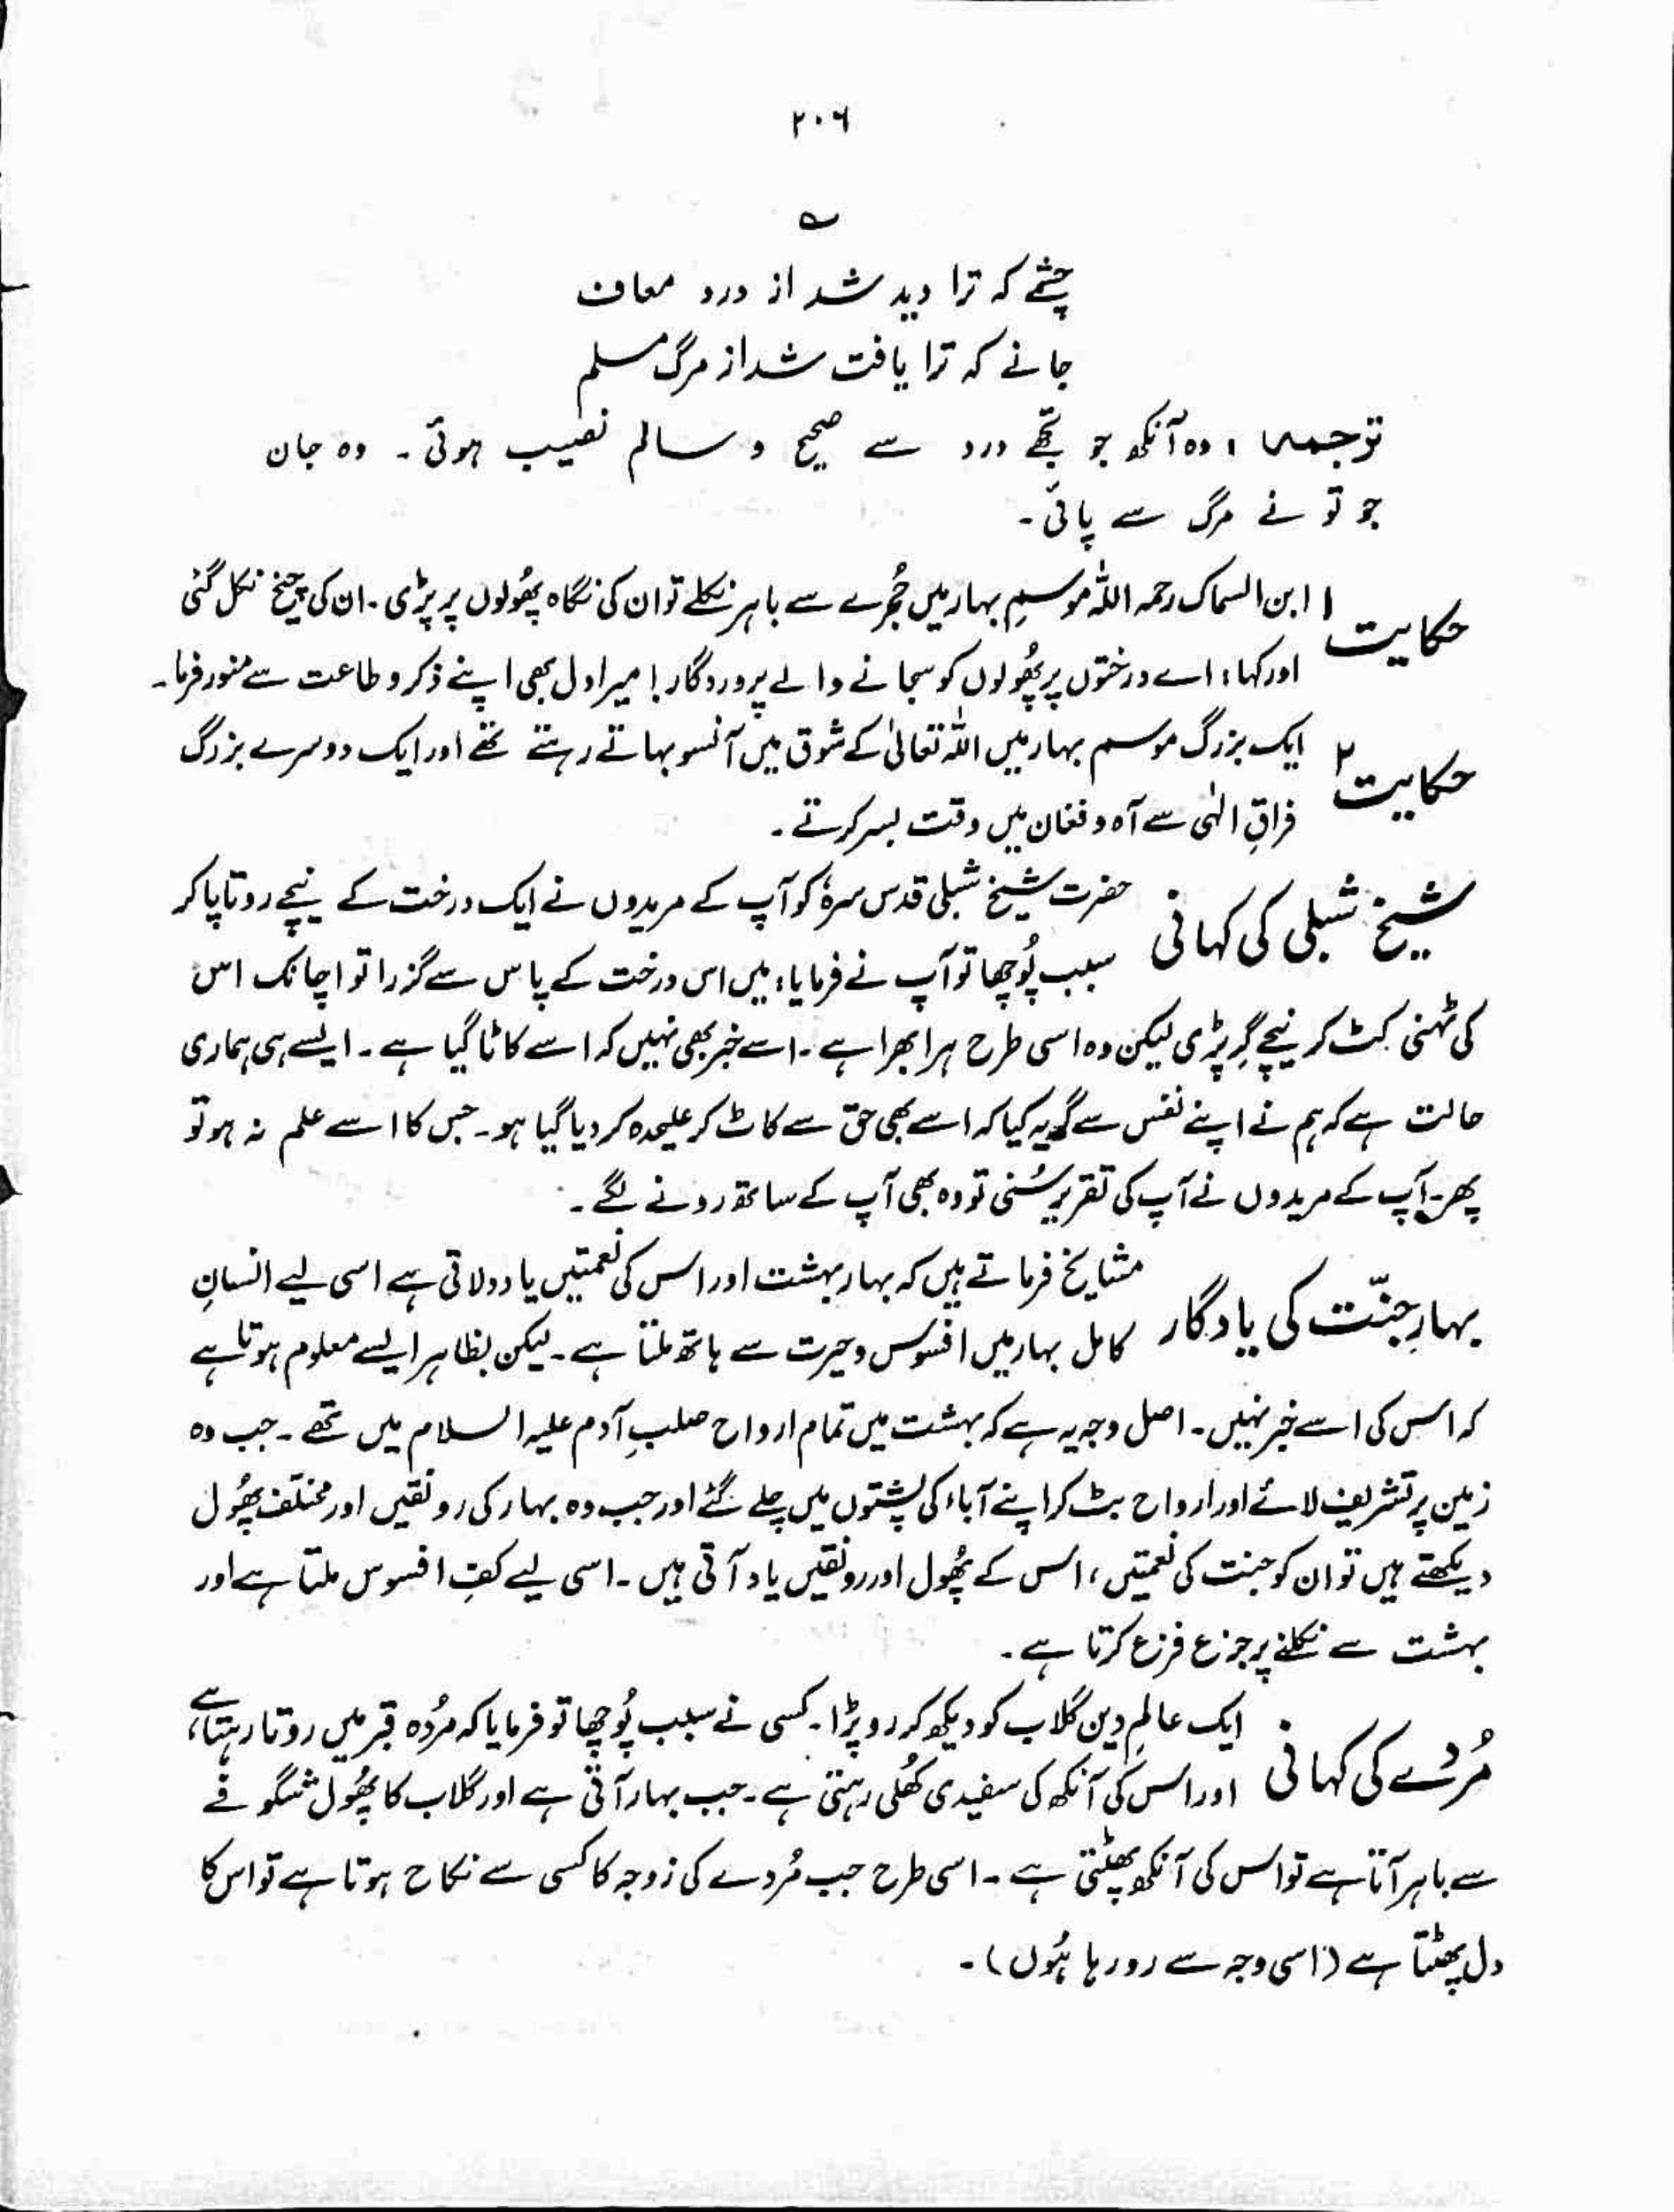 ۲۰۶
؎
چشمے کہ ترا دید شد از درد معاف
جانے کہ ترا یافت شد از مرگ مسلم
ترجمہ: وہ آنکھ جو تجھے درد سے صحیح و سالم نصیب ہوئی۔ وہ جان
جو تو نے مرگ سے پائی۔
حکایت ۱ ابن السماک رحمہ اللہ موسمِ بہار میں حُجرے سے باہر نکلے تو ان کی نگاہ پھُولوں پر پڑی۔ ان کی چیخ نکل گئی
اور کہا: اے درختوں پر پھُولوں کو سجانے والے پروردگار! میرا دل بھی اپنے ذکر و طاعت سے منور فرما۔
حکایت ۲ ایک بزرگ موسم بہار میں اللہ تعالیٰ کے شوق میں آنسو بہاتے رہتے تھے اور ایک دوسرے بزرگ
فراقِ الٰہی سے آہ و فغان میں وقت بسر کرتے۔
شیخ شبلی کی کہانی حضرت شیخ شبلی قدس سرہٗ کو آپ کے مریدوں نے ایک درخت کے نیچے روتا پا کر
سبب پُوچھا تو آپ نے فرمایا: میں اس درخت کے پاس سے گزرا تو اچانک اس
کی ٹہنی کٹ کر نیچے گِر پڑی لیکن وہ اسی طرح ہرا بھرا ہے۔ اسے خبر بھی نہیں کہ اسے کاٹا گیا ہے۔ ایسے ہی ہماری
حالت ہے کہ ہم نے اپنے نفس سے گریہ کیا کہ اسے بھی حق سے کاٹ کر علیحدہ کر دیا گیا ہو۔ جس کا اسے علم نہ ہو تو
پھر۔ آپ کے مریدوں نے آپ کی تقریر سُنی تو وہ بھی آپ کے ساتھ رونے لگے۔
بہارِ جنّت کی یادگار مشایخ فرماتے ہیں کہ بہار بہشت اور اس کی نعمتیں یاد دولاتی ہے اسی لیے انسانِ
کامل بہار میں افسوس و حیرت سے ہاتھ ملتا ہے۔ لیکن بظاہر ایسے معلوم ہوتا ہے
کہ اس کی اسے خبر نہیں۔ اصل وجہ یہ ہے کہ بہشت میں تمام ارواح صلبِ آدم علیہ السلام میں تھے۔ جب وہ
زمین پر تشریف لائے اور ارواح بٹ کر اپنے آباء کی پشتوں میں چلے گئے اور جب وہ بہار کی رونقیں اور مختلف پھُول
دیکھتے ہیں تو ان کو جنت کی نعمتیں، اس کے پھُول اور رونقیں یاد آتی ہیں۔ اسی لیے کفِ افسوس ملتا ہے اور
بہشت سے نکلنے پر جزع فزع کرتا ہے۔
مُردے کی کہانی ایک عالمِ دین گلاب کو دیکھ کر رو پڑا۔ کسی نے سبب پُوچھا تو فرمایا کہ مُردہ قبر میں روتا رہتا ہے،
اور اس کی آنکھ کی سفیدی کھُلی رہتی ہے۔ جب بہار آتی ہے اور گلاب کا پھُول شگوفے
سے باہر آتا ہے تو اس کی آنکھ پھٹتی ہے۔ اسی طرح جب مُردے کی زوجہ کا کسی سے نکاح ہوتا ہے تو اس کا
دل پھٹتا ہے (اسی وجہ سے رو رہا ہُوں)۔